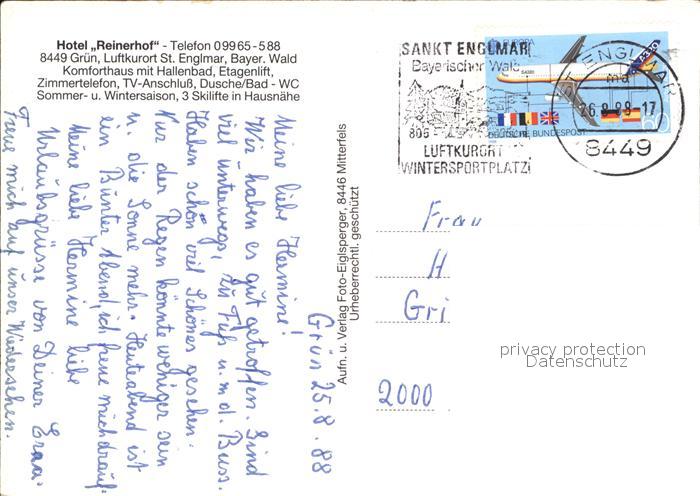 Hotel „Reinerhof" - Telefon 09965-588
8449 Grün, Luftkurort St. Englmar, Bayer. Wald
Komforthaus mit Hallenbad, Etagenlift,
Zimmertelefon, TV-Anschluß, Dusche/Bad - WC
Sommer- u. Wintersaison, 3 Skilifte in Hausnähe
Grün 25.8.88
Meine liebe Hermine!
Wir haben es gut getroffen. Sind
viel unterwegs, zu Fuß u. m. d. Buss.
Haben schon viel Schönes gesehen.
Nur der Regen könnte weniger sein
u. die Sonne mehr. Heute abend ist
ein Bunter Abend, ich freue mich drauf.
Meine liebe Hermine liebe
Urlaubsgrüsse von Deiner
Freue mich auf unser Wiedersehen.
Aufn. u. Verlag Foto-Eiglsperger, 8446 Mitterfels
Urheberrechtl. geschützt
SANKT ENGLMAR
Bayerischer Wald
805 -
LUFTKURORT
WINTERSPORTPLATZ
EUROPA
A320
DEUTSCHE BUNDESPOST
ST. ENGLMAR
ma
26.8.88-17
8449
Frau
H
Gri
2000
privacy protection
Datenschutz